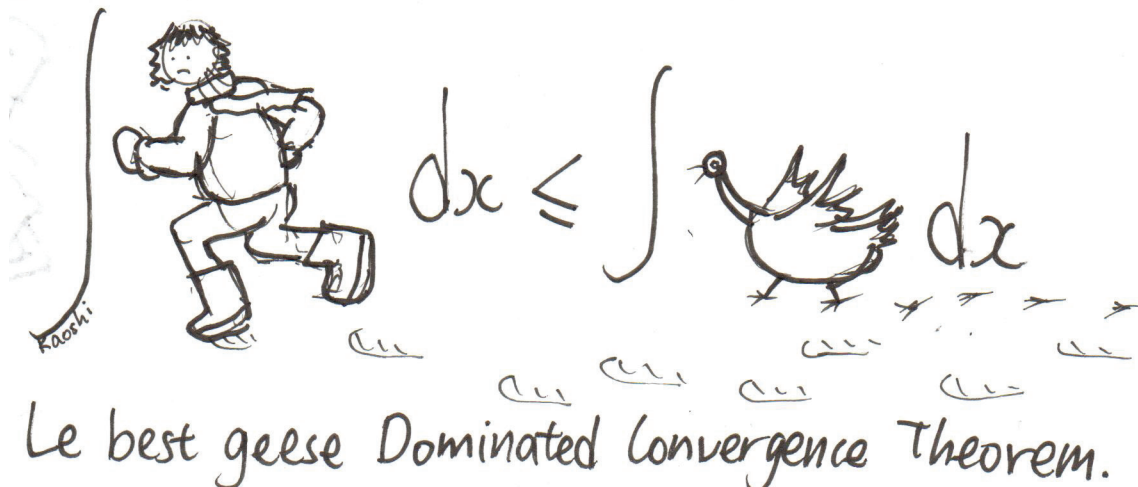 ∫ dx ≤ ∫ dx
Kaoshi
Le best geese Dominated Convergence Theorem.